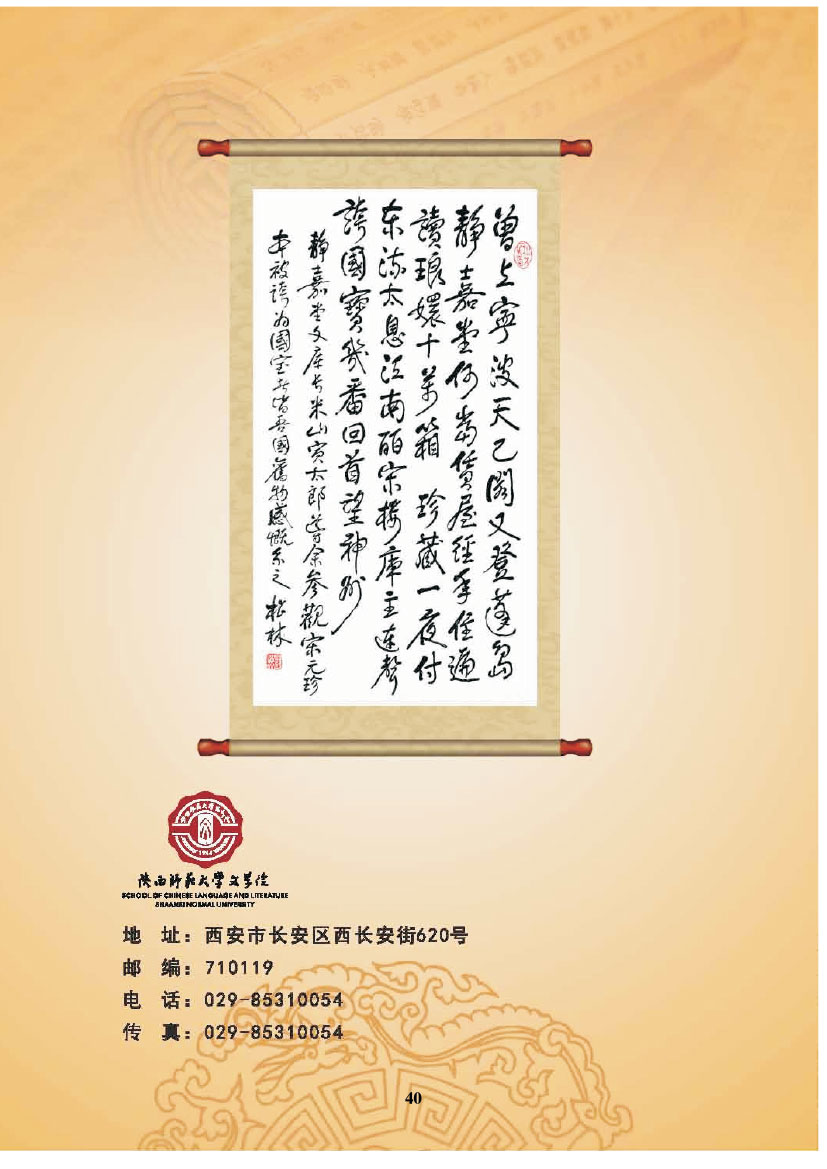 曾上寧波天乙閣又登蓬島
靜嘉堂何當賃屋經年住遍
讀琅嬛十萬箱 珍藏一夜付
东流太息江南皕宋樓庫主連聲
誇國寶幾番回首望神州
靜嘉堂文库长米山寅太郎導余参觀宋元珍
本被誇为國宝者皆吾國舊物感慨系之 松林
陕西师范大學文学院
SCHOOL OF CHINESE LANGUAGE AND LITERATURE
SHAANXI NORMAL UNIVERSITY
地 址：西安市长安区西长安街620号
邮 编：710119
电 话：029-85310054
传 真：029-85310054
40